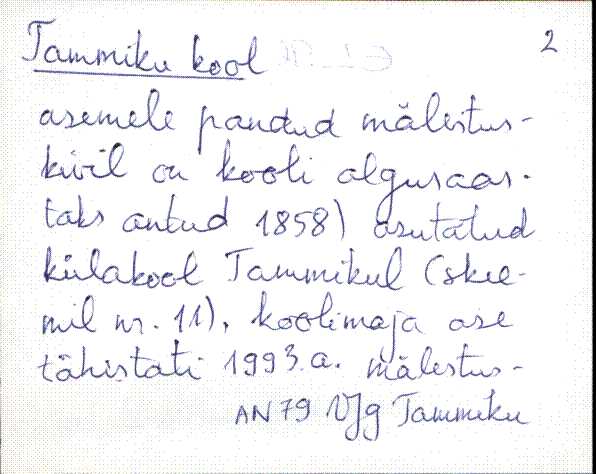 Tammiku kool 2
asemele pandud mälestus-
kivil on kooli algusaas-
taks antud 1858) asutatud
külakool Tammikul (skee-
mil nr. 11), koolimaja ase
tähistati 1993.a. mälestus-
AN79 VJg Tammiku